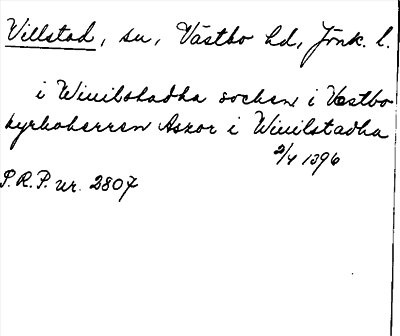 Villstad, sn, Västbo hd, Jönk. l.
i Winilstadha sochen i Væstbo
kyrkoherren Aszor i Winilstadha
2/4 1396
P.R.P. nr. 2807